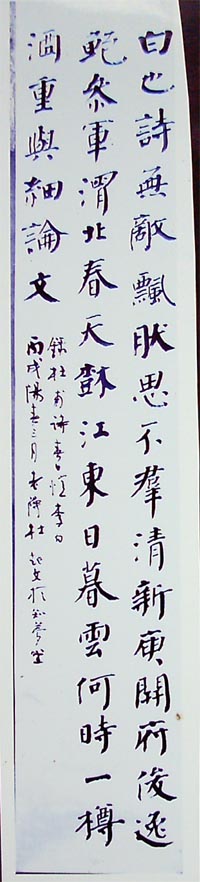 白也詩無敵飄然思不羣清新庾開府俊逸
鮑參軍渭北春天樹江東日暮雲何時一樽
酒重與細論文
錄杜甫詩春日憶李白
丙戌陽春三月